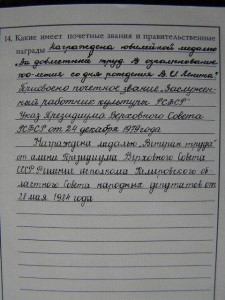 14. Какие имеет почетные звания и правительственные
награды Награждена юбилейной медалью
„За доблестный труд. В ознаменование
100-летия со дня рождения В. И. Ленина"
Присвоено почетное звание „Заслужен-
ный работник культуры РСФСР"
Указ Президиума Верховного Совета
РСФСР от 24 декабря 1974 года
Награждена медалью „Ветеран труда"
от имени Президиума Верховного Совета
СССР решение исполкома Кемеровского об
ластного Совета народных депутатов от
21 мая 1984 года